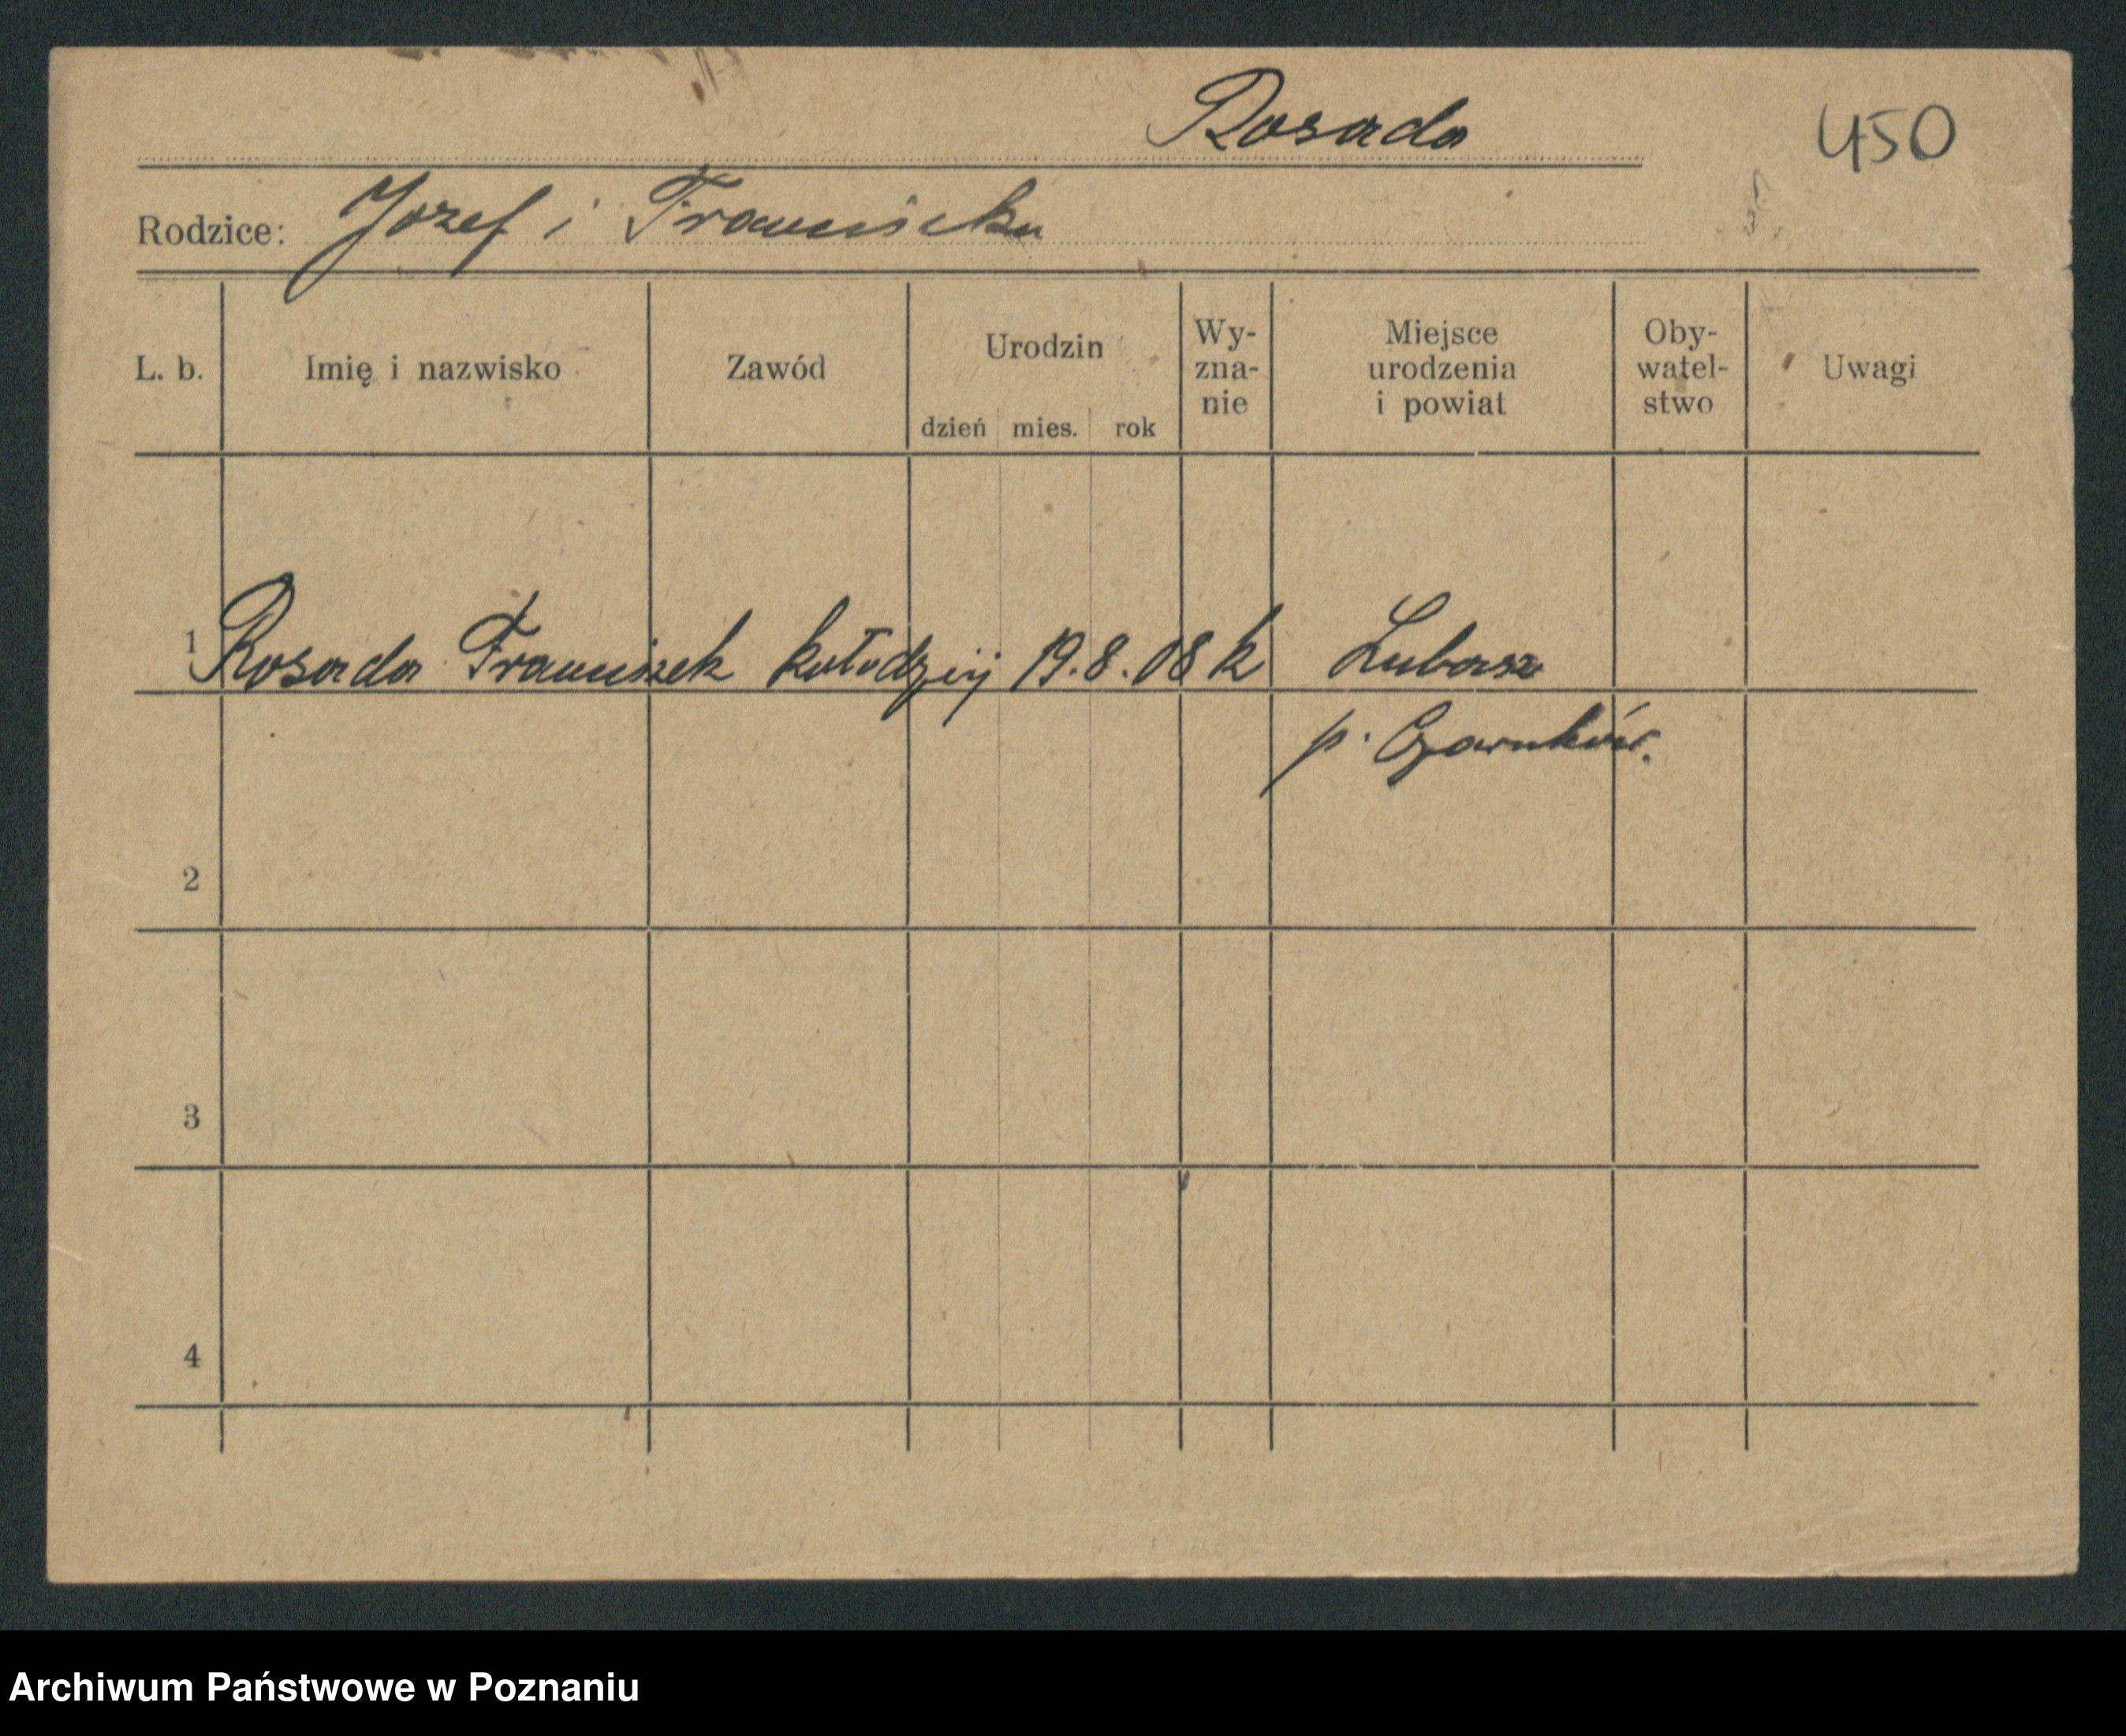 Rosada
450
Rodzice: Jozef i Franciszka
L. b. Imię i nazwisko Zawód Urodzin dzień mies. rok Wy-zna-nie Miejsce urodzenia i powiat Oby-watel-stwo Uwagi
1 Rosada Franciszek kołodziej 19.8.08 k Lubasz
p. Czarnków.
2
3
4
Archiwum Państwowe w Poznaniu